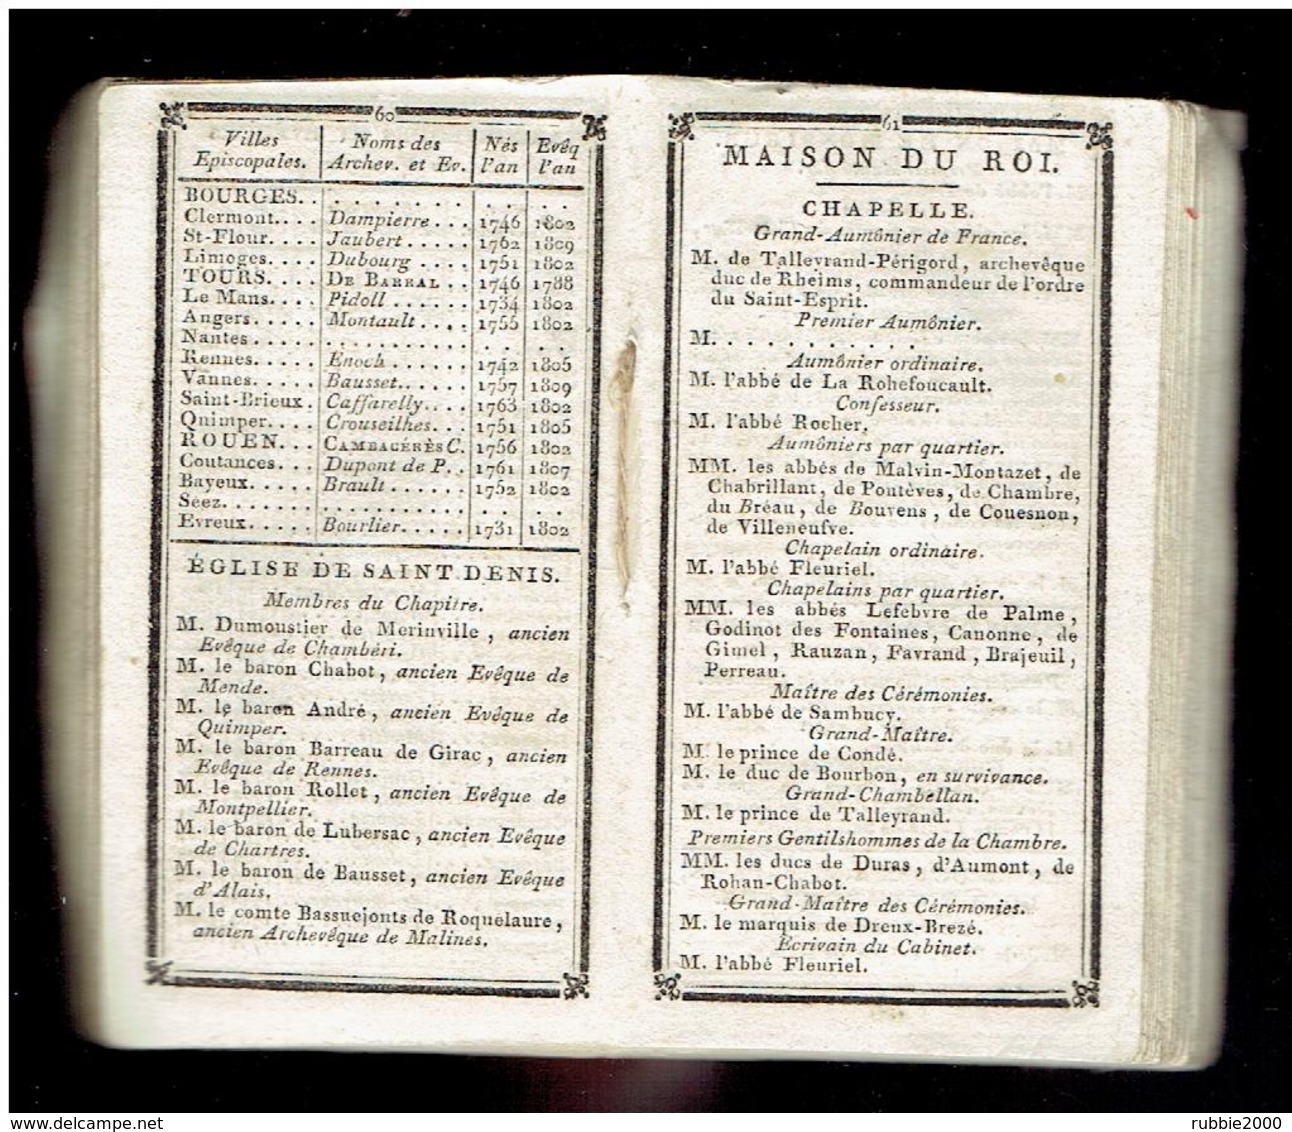 60
Villes Episcopales. | Noms des Archev. et Ev. | Nés l'an | Evêq l'an
BOURGES. . . . . . . . . . . . . . .
Clermont. . . . Dampierre . . . 1746 1802
St-Flour. . . . Jaubert . . . . . 1762 1809
Limoges. . . . Dubourg . . . . 1751 1802
TOURS. . . . DE BARRAL . . 1746 1788
Le Mans. . . . Pidoll . . . . . . 1734 1802
Angers. . . . . Montault . . . . 1755 1802
Nantes . . . . . . . . . . . . . . . . . . .
Rennes. . . . . Enoch . . . . . . 1742 1805
Vannes. . . . . Bausset. . . . . . 1757 1809
Saint-Brieux . Caffarelly. . . . 1763 1802
Quimper. . . . Crouseilhes. . . 1751 1805
ROUEN. . . CAMBACÉRÈS C. 1756 1802
Coutances. . . Dupont de P. . 1761 1807
Bayeux. . . . . Brault . . . . . . 1752 1802
Séez. . . . . . . . . . . . . . . . . . . .
Evreux. . . . . Bourlier. . . . . 1731 1802
ÉGLISE DE SAINT DENIS.
Membres du Chapitre.
M. Dumoustier de Merinville, ancien
Evêque de Chambéri.
M. le baron Chabot, ancien Evêque de
Mende.
M. le baron André, ancien Evêque de
Quimper.
M. le baron Barreau de Girac, ancien
Evêque de Rennes.
M. le baron Rollet, ancien Evêque de
Montpellier.
M. le baron de Lubersac, ancien Evêque
de Chartres.
M. le baron de Bausset, ancien Evêque
d'Alais.
M. le comte Bassuejonts de Roquelaure,
ancien Archevêque de Malines.
61
MAISON DU ROI.
CHAPELLE.
Grand-Aumônier de France.
M. de Talleyrand-Périgord, archevêque
duc de Rheims, commandeur de l'ordre
du Saint-Esprit.
Premier Aumônier.
M. . . . . . . . . . . .
Aumônier ordinaire.
M. l'abbé de La Rohefoucault.
Confesseur.
M. l'abbé Rocher.
Aumôniers par quartier.
MM. les abbés de Malvin-Montazet, de
Chabrillant, de Pontèves, de Chambre,
du Bréau, de Bouvens, de Couesnon,
de Villeneufve.
Chapelain ordinaire.
M. l'abbé Fleuriel.
Chapelains par quartier.
MM. les abbés Lefebvre de Palme,
Godinot des Fontaines, Canonne, de
Gimel, Rauzan, Favrand, Brajeuil,
Perreau.
Maître des Cérémonies.
M. l'abbé de Sambucy.
Grand-Maître.
M. le prince de Condé.
M. le duc de Bourbon, en survivance.
Grand-Chambellan.
M. le prince de Talleyrand.
Premiers Gentilshommes de la Chambre.
MM. les ducs de Duras, d'Aumont, de
Rohan-Chabot.
Grand-Maître des Cérémonies.
M. le marquis de Dreux-Brezé.
Ecrivain du Cabinet.
M. l'abbé Fleuriel.
rubbie2000